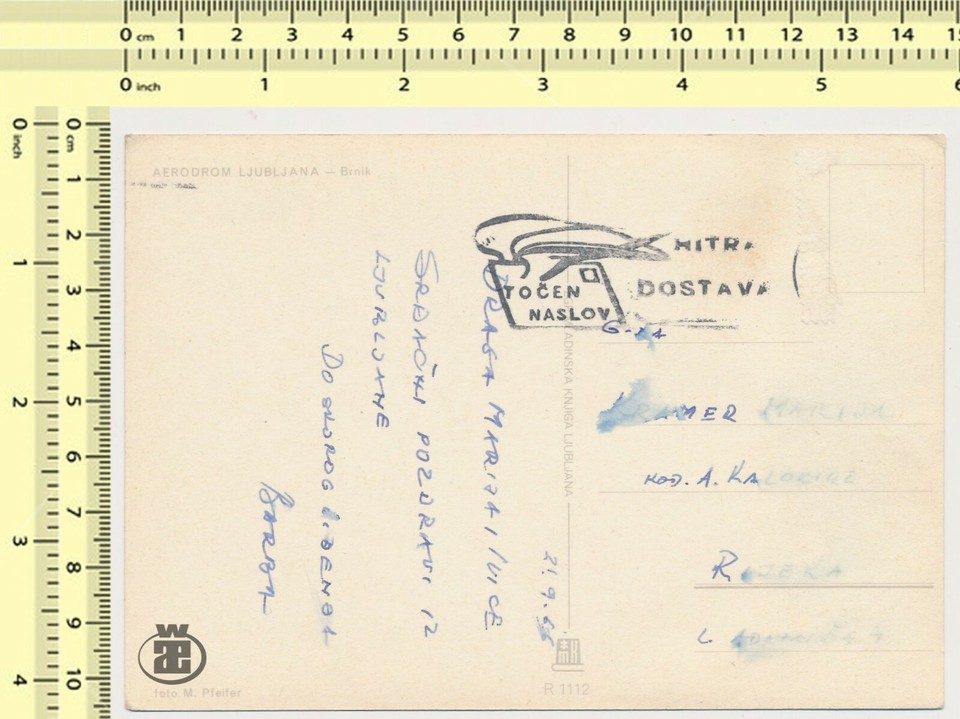 0 cm 1 2 3 4 5 6 7 8 9 10 11 12 13 14 15
0 inch 1 2 3 4 5 6
0 inch 1 2 3 4
0 cm 1 2 3 4 5 6 7 8 9 10
AERODROM LJUBLJANA — Brnik
HITRA
DOSTAVA
TOČEN
NASLOV
DRAGA MARIJA I IVICE
SRDAČNI POZDRAVI IZ
LJUBLJANE
DO SKOROG VIĐENJA
BARBA
21.9.66
G-JA
KRAMER MARIJA
KOD. A. KA
RIJEKA
MLADINSKA KNJIGA LJUBLJANA
foto M. Pfeifer
R 1112